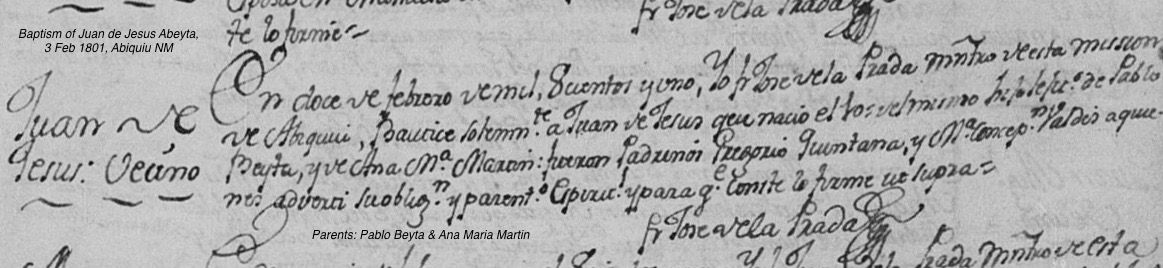 te lo firme
fr Jose de la Prada
Baptism of Juan de Jesus Abeyta,
3 Feb 1801, Abiquiu NM
Juan de
Jesus: Vecino
En doce de febrero de mil, 8cientos y uno, Yo fr Jose de la Prada Mñtro de esta mission
de Abiquiu, Bautice solemn.te a Juan de Jesus que nacio el dos del mismo hijo de Pablo
Beyta, y de Ana Ma. Martin: fueron Padrinos Gregorio Quintana, y Ma. Concep.n Valdes a quie-
nes adverti su oblig.n y parent.o Espirit.l y para q.e Conste lo firme ut supra
fr Jose de la Prada
Parents: Pablo Beyta & Ana Maria Martin
Prada Mñtro de esta